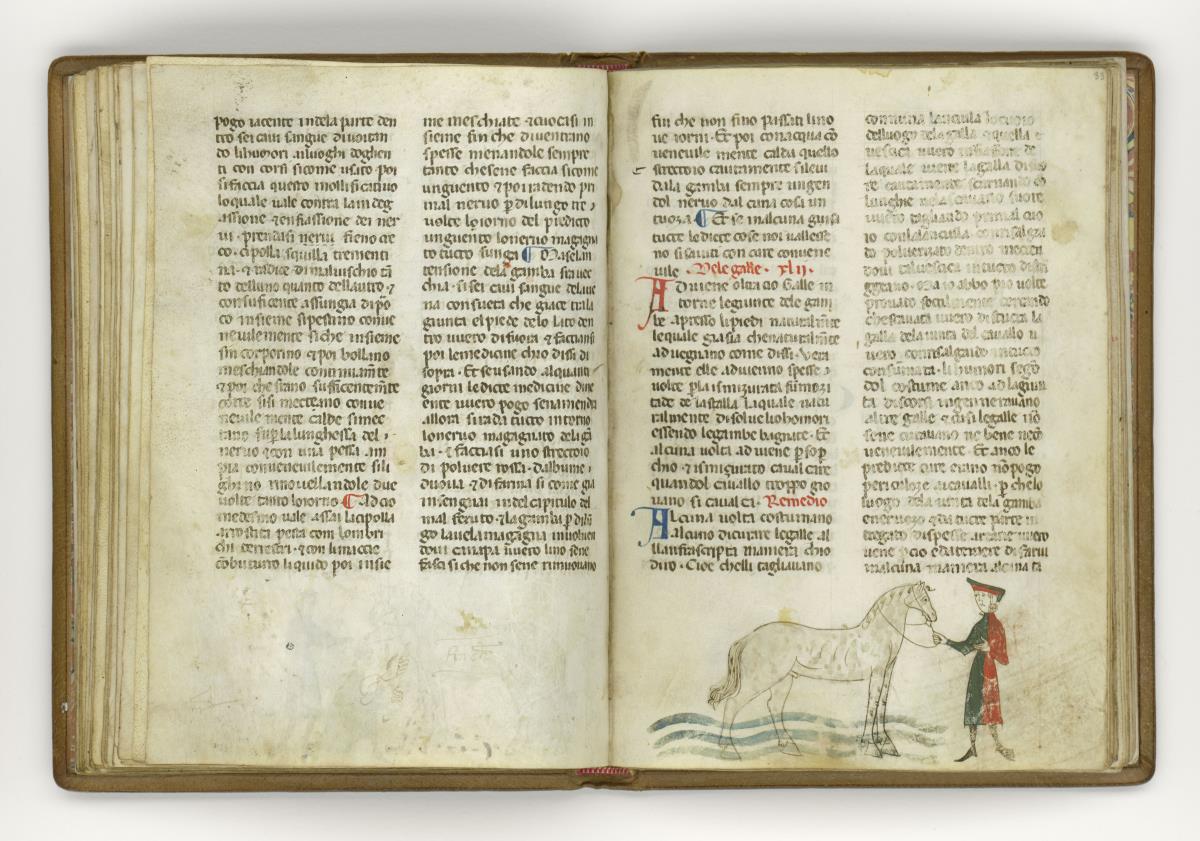 pogo iacente indela parte den
tro sei caui sangue diuotan
do lihumori aluoghi doglien
ti con corsi sicome usato poi
si faccia questo mollificatiuo
loquale uale contra la indeg
nassione & enfiassione dei ner
ui prendasi nerui fieno gre
co cipolla squilla trementi
na & radice di maluischio tā
to delluno quanto dellaltro &
con suficente assungia di pō
co insieme si pestino conue
neuilemente si che insieme
sin corporino & poi bollano
meschiandole continuam̄te
& poi che stano sufficentem̄te
cotte si si metteano conue
neuile mente calde si met
tano sup̄ la lunghessa del
nervo & con una pessa
conueneuilemente si li
ghino rinouellandole due
uolte tanto loiorno Ad cio
medesmo uale assai la cipolla
arrostita pesta com lombri
chi terrestri & con lumaccie
cobuturo liquido poi insie
me meschiate & cuocasi in
sieme fin che diuentano
spesse menandole sempre
tanto che sene faccia sicome
unguento & poi radendo pri
mal neruo p̄ di lungo tre
uolte loiorno del predicto
unguento loneruo magagna
to tucto sungi Da sel in
tensione dela gamba sia uec
chia si sei caui sangue dela ue
na consueta che giace tra la
giunta el piede delo lato den
tro uuero di fuora & faccians
poi le medicine chio dissi di
sopra Et se usando alquanti
giorni le dicte medicine diu
ente uuero pogo sen amenda
allora si rada tucto intorno
loneruo magagnato del gā
ba & facciasi uno strectoio
di poluere rossa dalbume
duoua & di farina si come gia
insengnai indel capitulo del
mal feruto & la gamba p̄ dilū
go la uela magagna inuoluen
doui canapa uuero lino sene
fasci si che non sene rimuouano
fin che non sino passati lino
ue iorni Et poi con acqua cō
ueneuile mente calda quello
strectoio cautamente si leui
dala gamba sempre ungen
dol neruo dalcuna cosa un
tuoza Et se in alcuna guisa
tucte le dicte cose noi uallesse
no si sauiti con care conuene
uile Dele galle xlii
Aduiene oltra cio galle in
torne le giunte dele gam
be apresso li piedi naturalm̄te
le quale gia sia che naturalm̄te
ad uegnano come dissi uera
mente elle aduenno spesse
uolte p̄ la ismizurata fūmozi
tade de la stalla laquale natu
ralmente disolue li homori
essendo le gambe bagnate Et
alcuna uolta ad uiene p̄ sop̄
chio & ismizurato caualcare
quandol cauallo troppo gio
uano si caualca Remedio
Alcuna uolta costumano
alcuno di curare le galle al
lanfrascripta maniera chio
diro Cioe chelli tagliauano
con una lancila lo cuoio
delluogo dela galla & quella
uescica uuero infiassione de
laquale uiene la galla
re cautamente scarnando co
lunghie nela scauano fuore
uuero tagliando prima l cuo
io con la lancila con risalga
do poluerato dentro metten
doui la uescica intucto distru
ggeano Ma io abbo piu uolte
prouato sotilmente cercando
che scauata uuero distructa la
galla dela iunta del cauallo u
uero con risalgardo intucto
consumata li humori sego
dol costume anco ad la giun
ta discorsi ui ingenerauano
altre galle & cusi le galle nō
sene curauano ne bene ne cō
ueneuilemente Et anco le
predicte cure erano nō pogo
pericoloze ai caualli p̄ che lo
luogo dela iunta dela gamba
eneruozo & da tucte parte in
tregato di spesse arterie uuero
uene p̄ cio e da temere di farui
in alcuna maniera alcuna ta
83